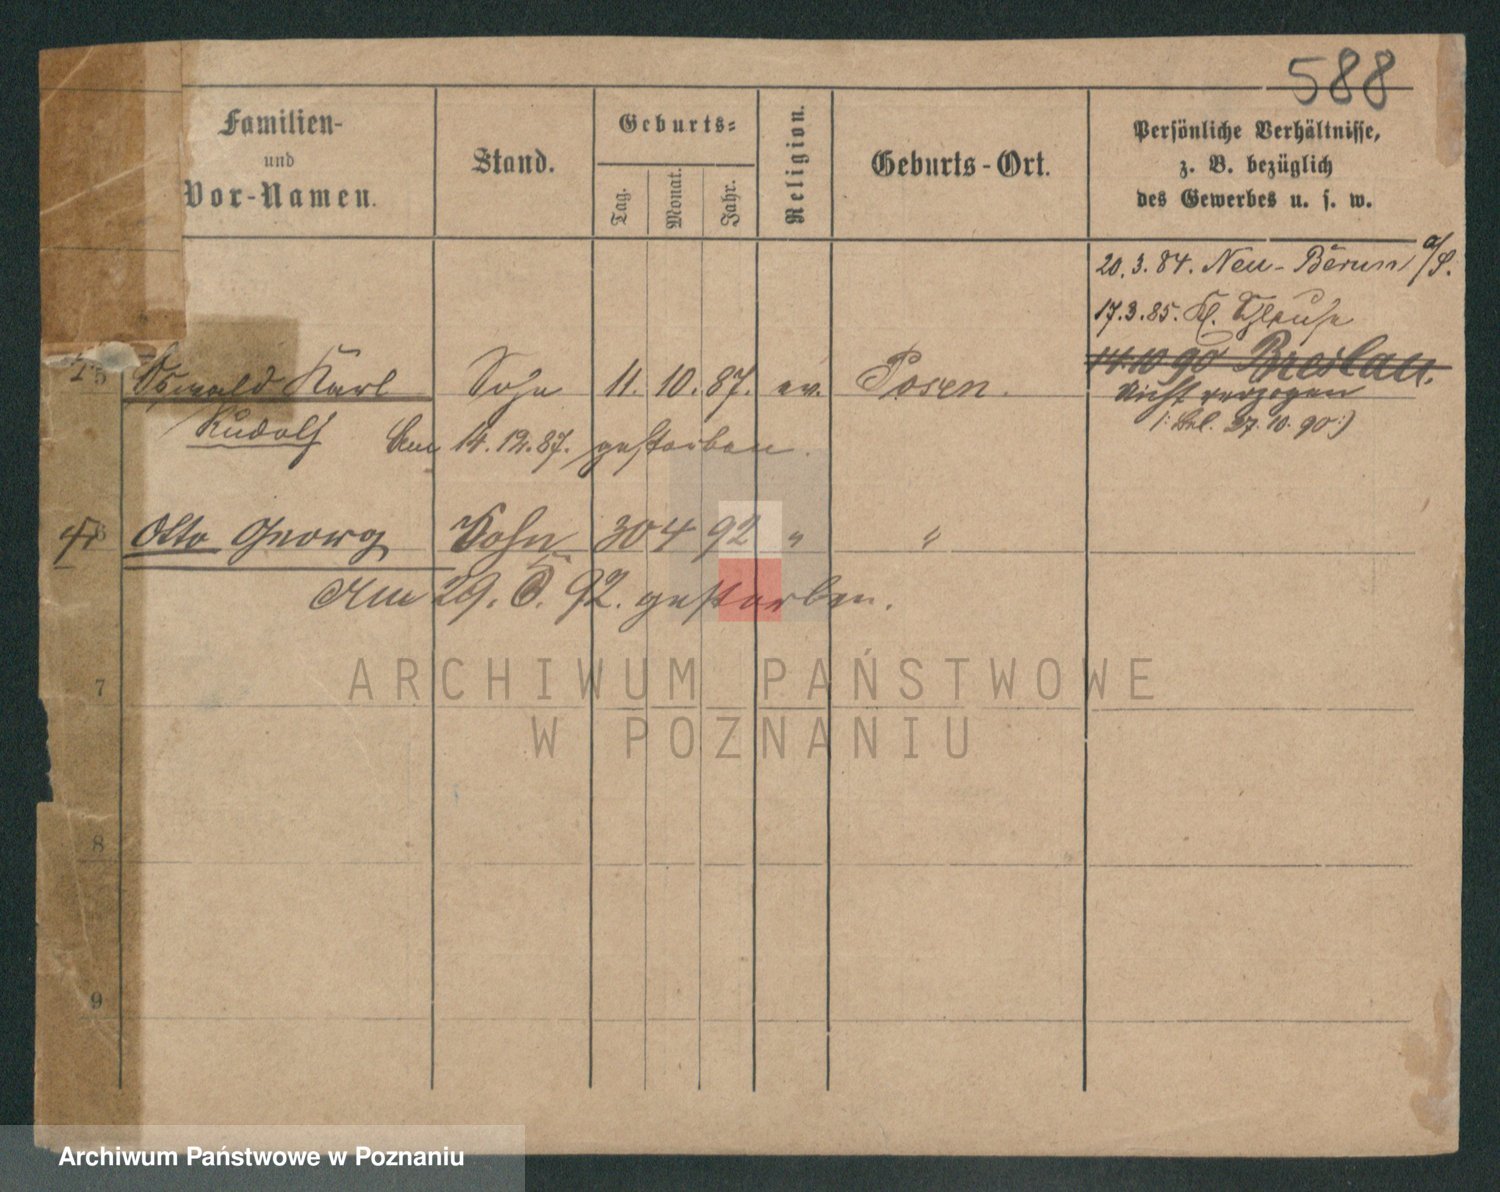 588
Familien-
und
Vor-Namen.
Stand.
Geburts-
Tag.
Monat.
Jahr.
Religion.
Geburts-Ort.
Persönliche Verhältnisse,
z. B. bezüglich
des Gewerbes u. s. w.
20.3.84. Neu-Berun a/S.
17.3.85. Kl.
14.10 90 Breslau.
Nicht verzogen
27.10.90:)
5 Oswald Karl Sohn 11. 10. 87. ev. Posen.
Rudolf Am 14.12.87. gestorben.
6 Otto Georg Sohn 30 4 92 " "
Am 29. 5. 92. gestorben.
7
8
9
ARCHIWUM PAŃSTWOWE
W POZNANIU
Archiwum Państwowe w Poznaniu